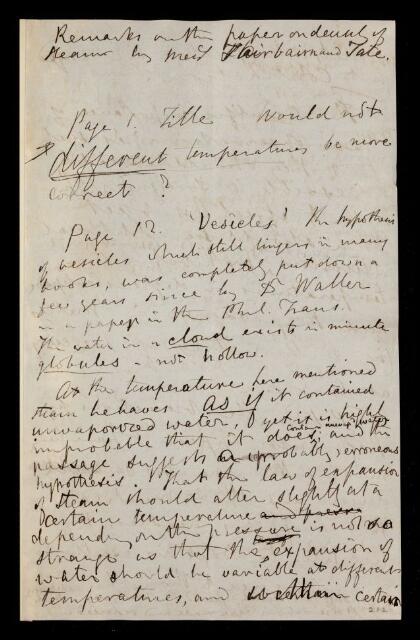 Remarks on the paper on density of
steam by Messrs Fairbairn and Tate.
Page 1. Title would not
different temperatures be more
correct?
Page 12. 'Vesicles' the hypothesis
of vesicles which still lingers in many
books, was completely put down a
few years since by Dr Waller
in a paper in the Phil. Trans.
The water in a cloud exists in minute
globules - not hollow.
At the temperature here mentioned
steam behaves as if it contained
unvaporized water, yet it is highly
improbable that it does, and the
passage suggests probably erroneous
hypothesis. That the law of expansion
of steam should alter slightly at a
certain temperature and press
depending on the pressure is not so
strange as that the expansion of
water should be variable at different
temperatures, and within certain